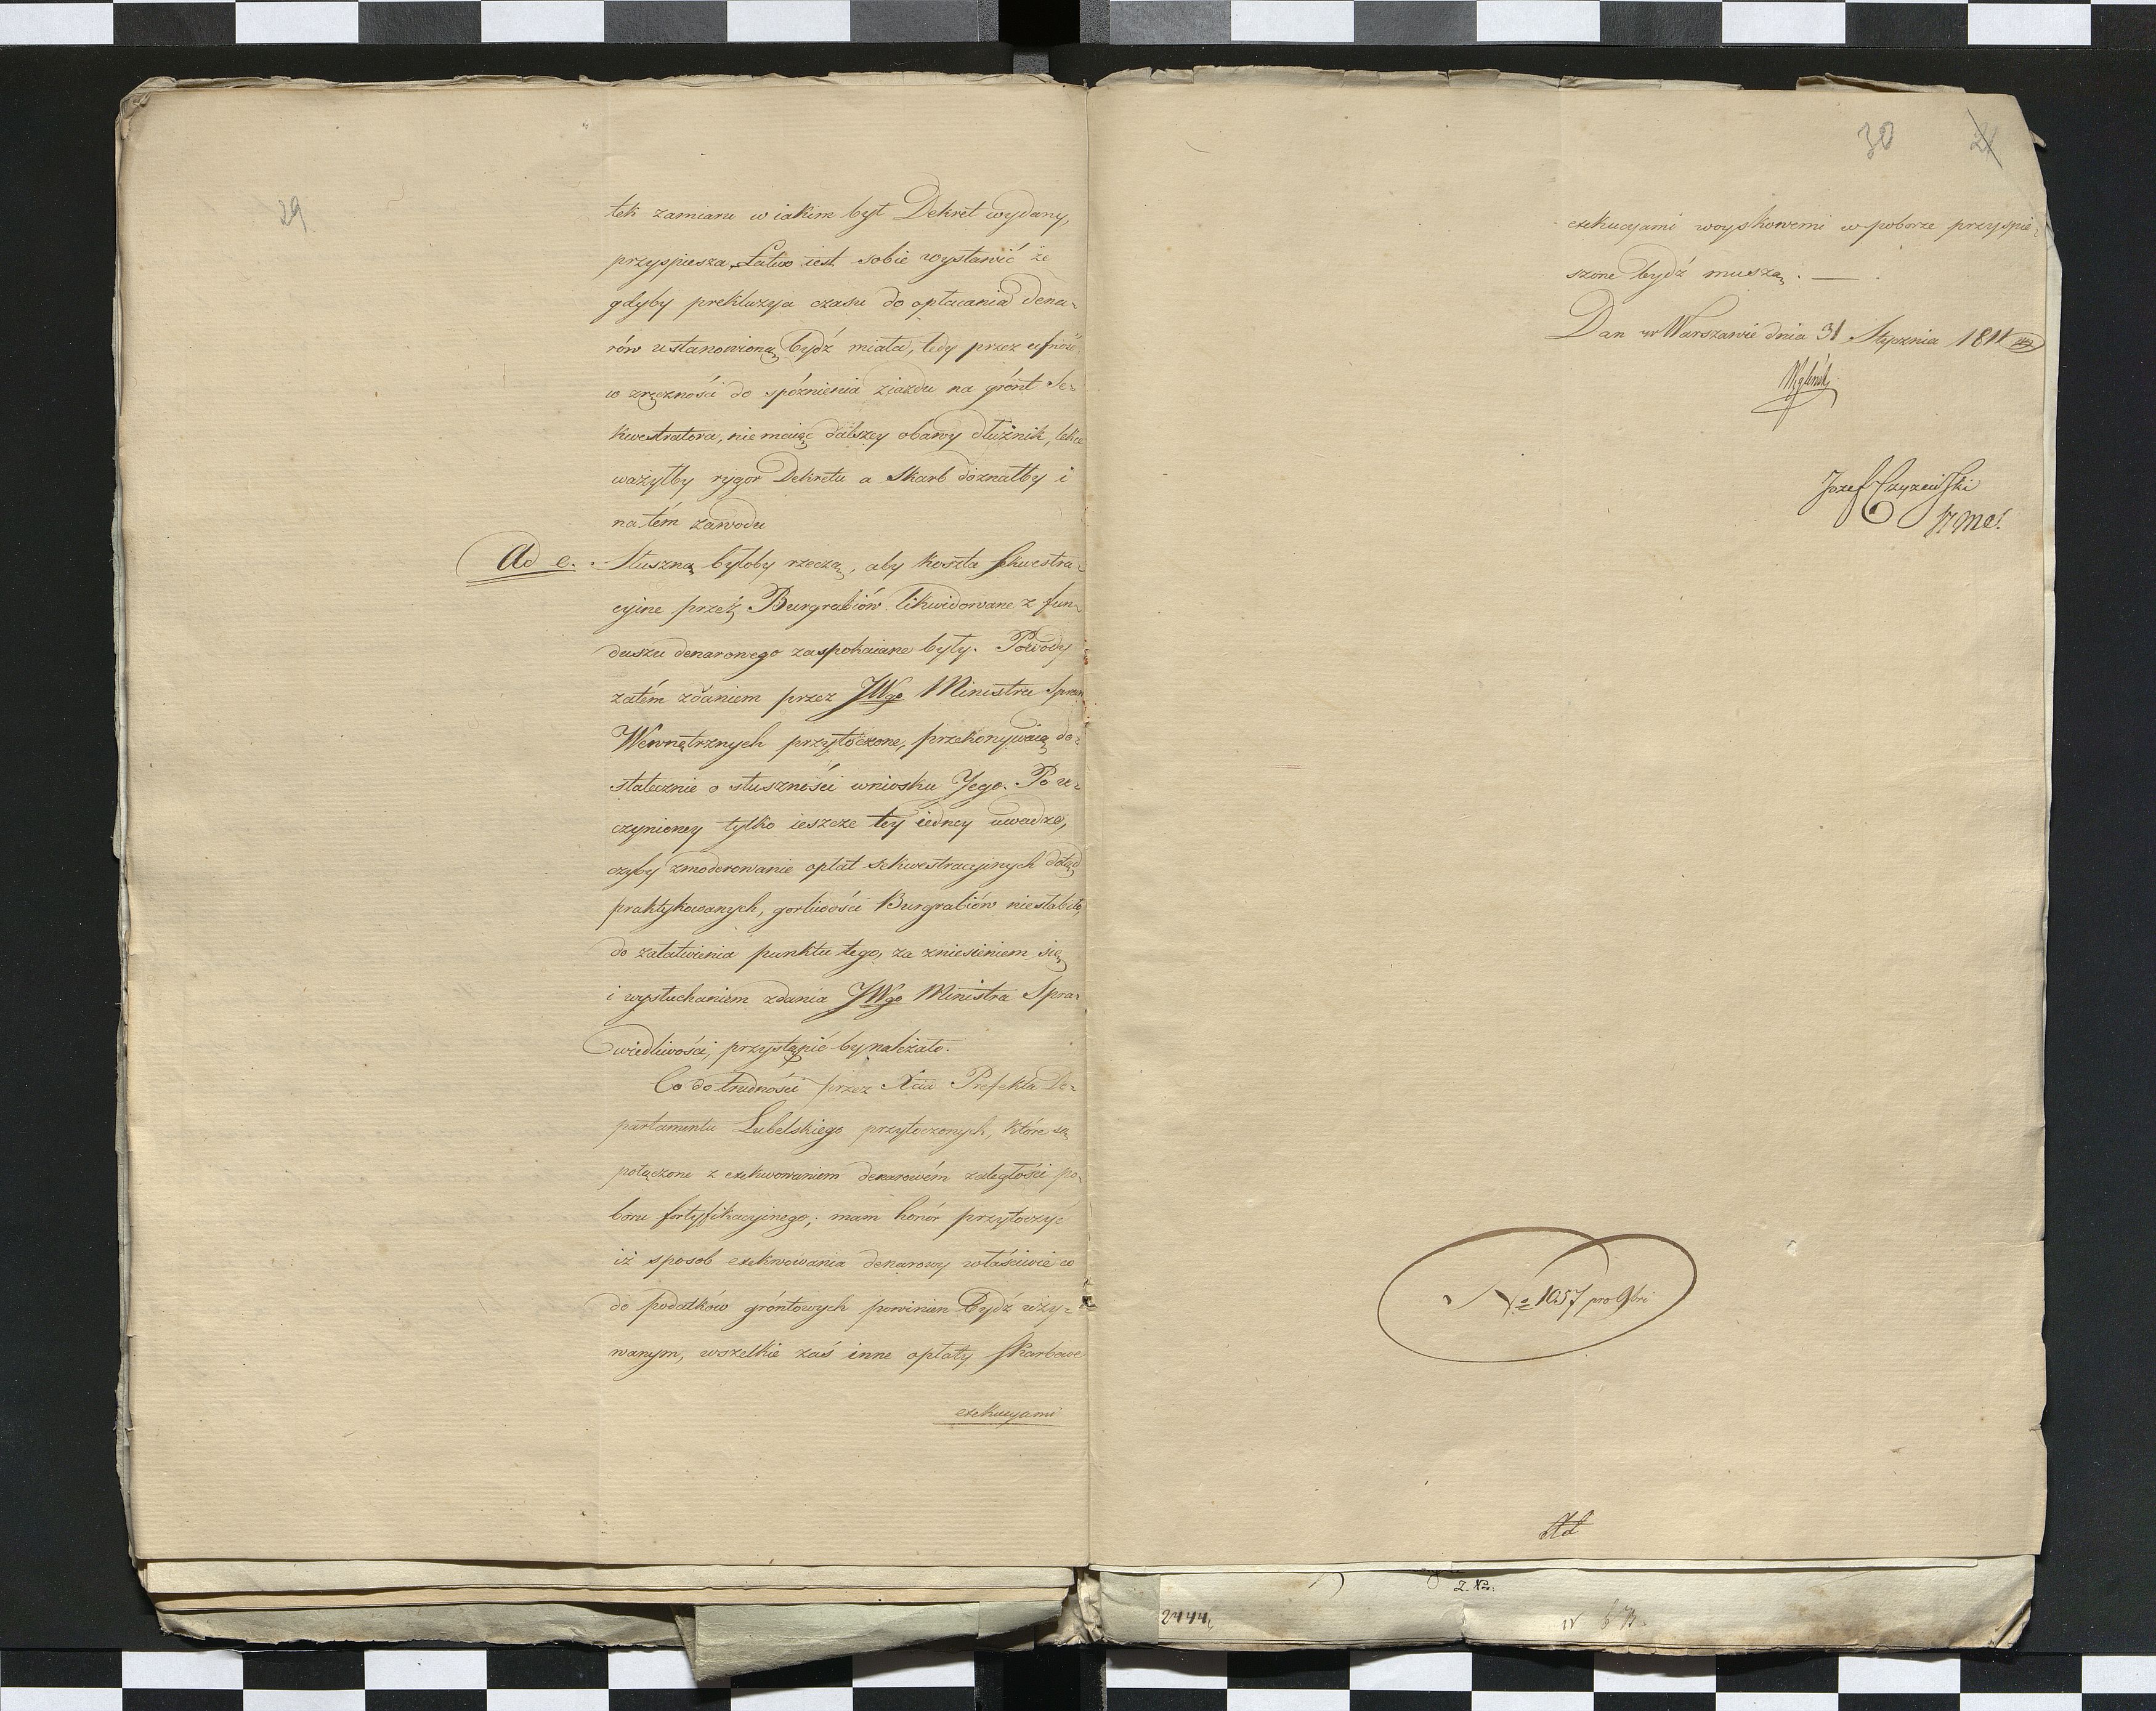 29
tek zamiaru w iakim był Dekret wydany,
przyspiesza. Łatwo iest sobie wystawić że
gdyby prekluzya czasu do opłacania dena-
rów ustanowioną bydź miała, tedy przez
w zręczności do spóźnienia ziazdu na grónt Se-
kwestratora, nie maiąc dalszey obawy dłużnik, lekce
ważyłby rygor Dekretu a Skarb doznałby i
na tém zawodu
Ad e. Słuszną byłoby rzeczą, aby koszta Sekwestra-
cyine przez Burgrabiów likwidowane z fun-
duszu denarowego zaspokaiane były. Powody
zatém zdaniem przez JWgo Ministra Spraw
Wewnętrznych przytoczone, przekonywaią do-
statecznie o słuszności wniosku Jego. Po u-
czynioney tylko ieszcze tey iedney uwadze,
czyby zmoderowanie opłat sekwestracyinych dotąd
praktykowanych, gorliwości Burgrabiów niesłabiło,
do załatwienia punktu tego, za zniesieniem się
i wysłuchaniem zdania JWgo Ministra Spra-
wiedliwości, przystąpić by należało.
Co do trudności przez Xcia Prefekta De-
partamentu Lubelskiego przytoczonych, które są
połączone z exekwowaniem denarowém zaległości po-
boru fortyfikacyinego; mam honór przytoczyć
iż sposob exekwowania denarowy właściwie co
do podatków gróntowych powinien bydź uży-
wanym, wszelkie zaś inne opłaty Skarbowe
exekucyami
30 21
exekucyami woyskowemi w poborze przyspie-
szone bydź muszą. —
Dan w Warszawie dnia 31 Stycznia 1811
Węgliński
Jozef Czyzewski
No 1057 pro 9bri
2444